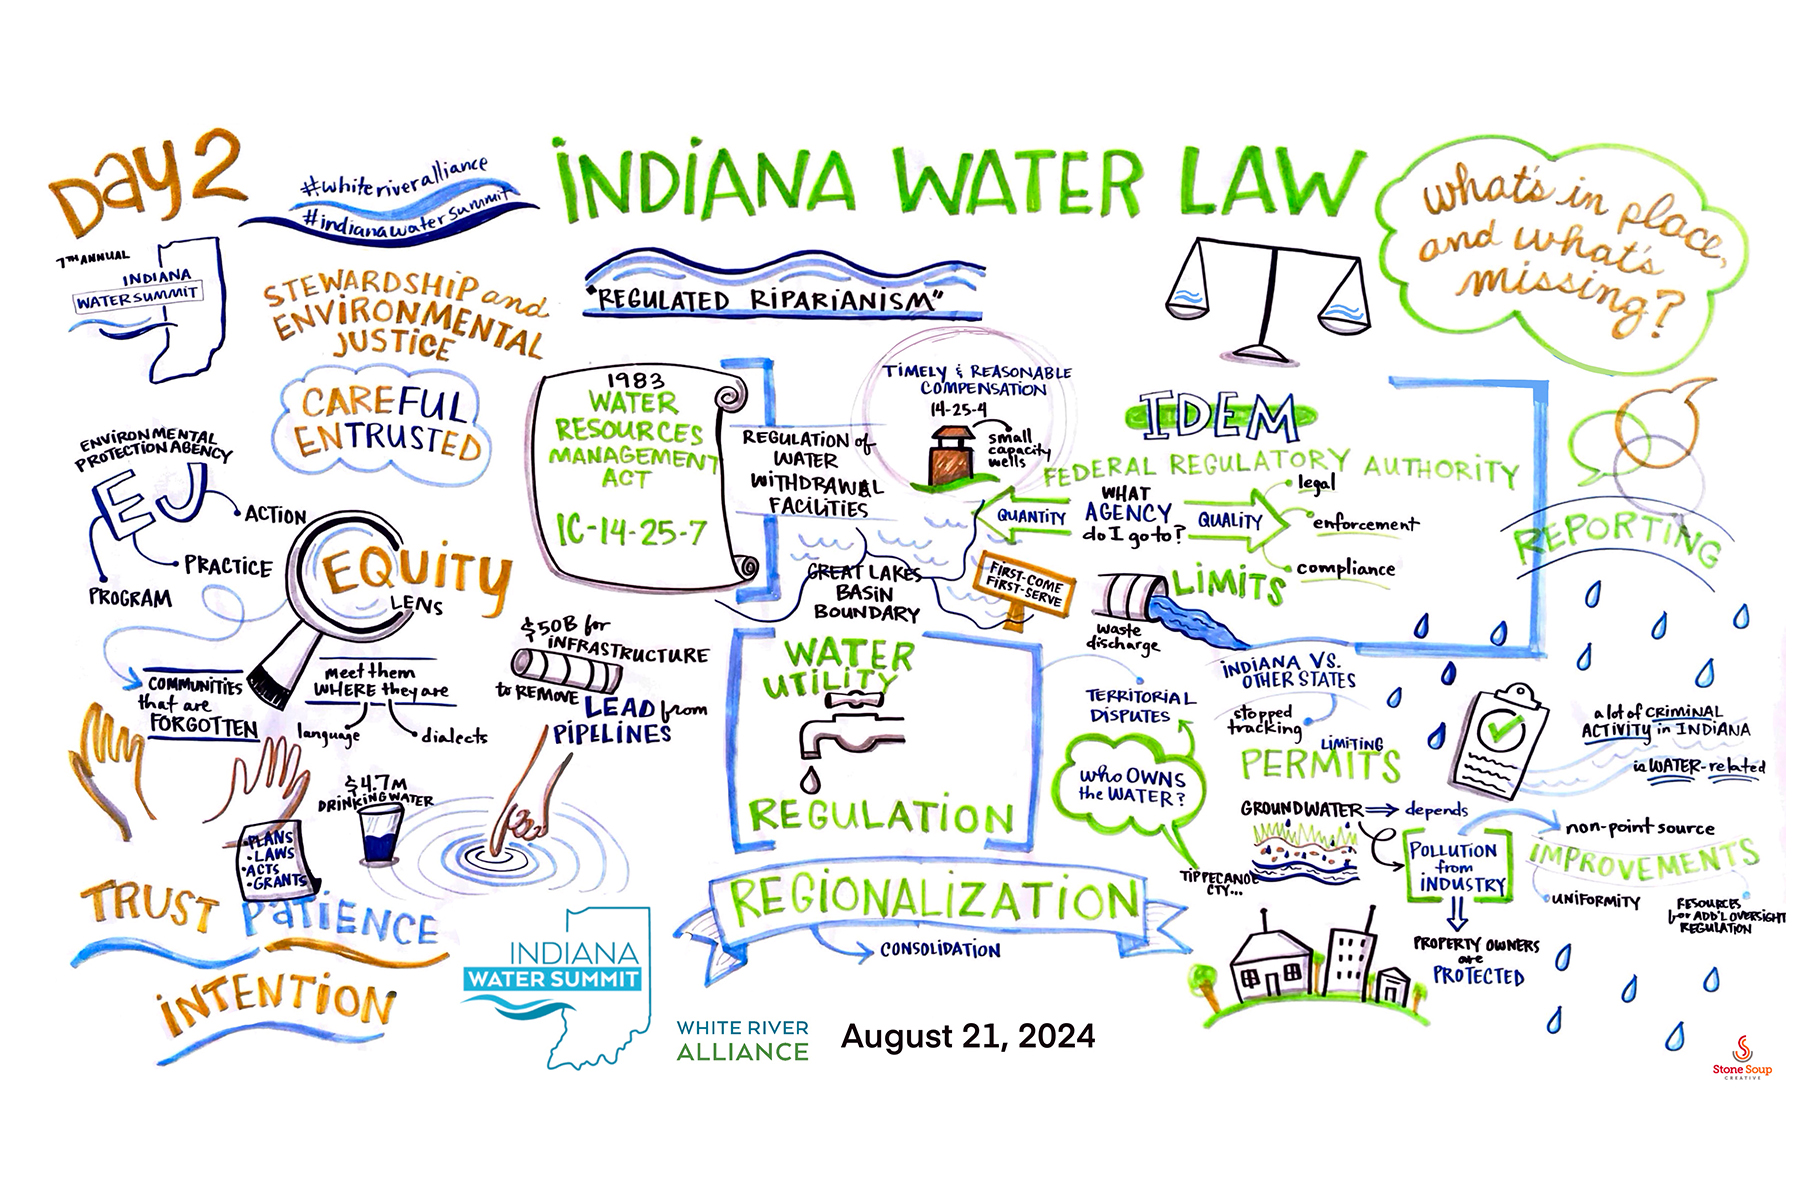 Day 2
#whiteriveralliance
#indianawatersummit
INDIANA WATER LAW
what's in place,
and what's
missing?
7TH ANNUAL
INDIANA
WATER SUMMIT
STEWARDSHIP and
ENVIRONMENTAL
JUSTICE
CAREFUL
ENTRUSTED
ENVIRONMENTAL
PROTECTION AGENCY
EJ
ACTION
PRACTICE
PROGRAM
EQUITY
LENS
COMMUNITIES
that are
FORGOTTEN
meet them
WHERE they are
language
dialects
$50B for
INFRASTRUCTURE
to REMOVE LEAD from
PIPELINES
$4.7M
DRINKING WATER
•PLANS
•LAWS
•ACTS
•GRANTS
TRUST PATIENCE
INTENTION
"REGULATED RIPARIANISM"
1983
WATER
RESOURCES
MANAGEMENT
ACT
IC-14-25-7
REGULATION of
WATER
WITHDRAWAL
FACILITIES
TIMELY & REASONABLE
COMPENSATION
14-25-4
small
capacity
wells
GREAT LAKES
BASIN
BOUNDARY
FIRST-COME
FIRST-SERVE
WATER
UTILITY
REGULATION
REGIONALIZATION
CONSOLIDATION
IDEM
FEDERAL REGULATORY AUTHORITY
QUANTITY
WHAT
AGENCY
do I go to?
QUALITY
legal
enforcement
compliance
LIMITS
waste
discharge
TERRITORIAL
DISPUTES
who OWNS
the WATER?
TIPPECANOE
CTY...
INDIANA VS.
OTHER STATES
stopped
tracking
LIMITING
PERMITS
GROUNDWATER
depends
POLLUTION
from
INDUSTRY
PROPERTY OWNERS
are
PROTECTED
REPORTING
a lot of CRIMINAL
ACTIVITY in INDIANA
is WATER-related
non-point source
IMPROVEMENTS
UNIFORMITY
RESOURCES
for ADD'L OVERSIGHT
REGULATION
INDIANA
WATER SUMMIT
WHITE RIVER
ALLIANCE
August 21, 2024
Stone Soup
CREATIVE